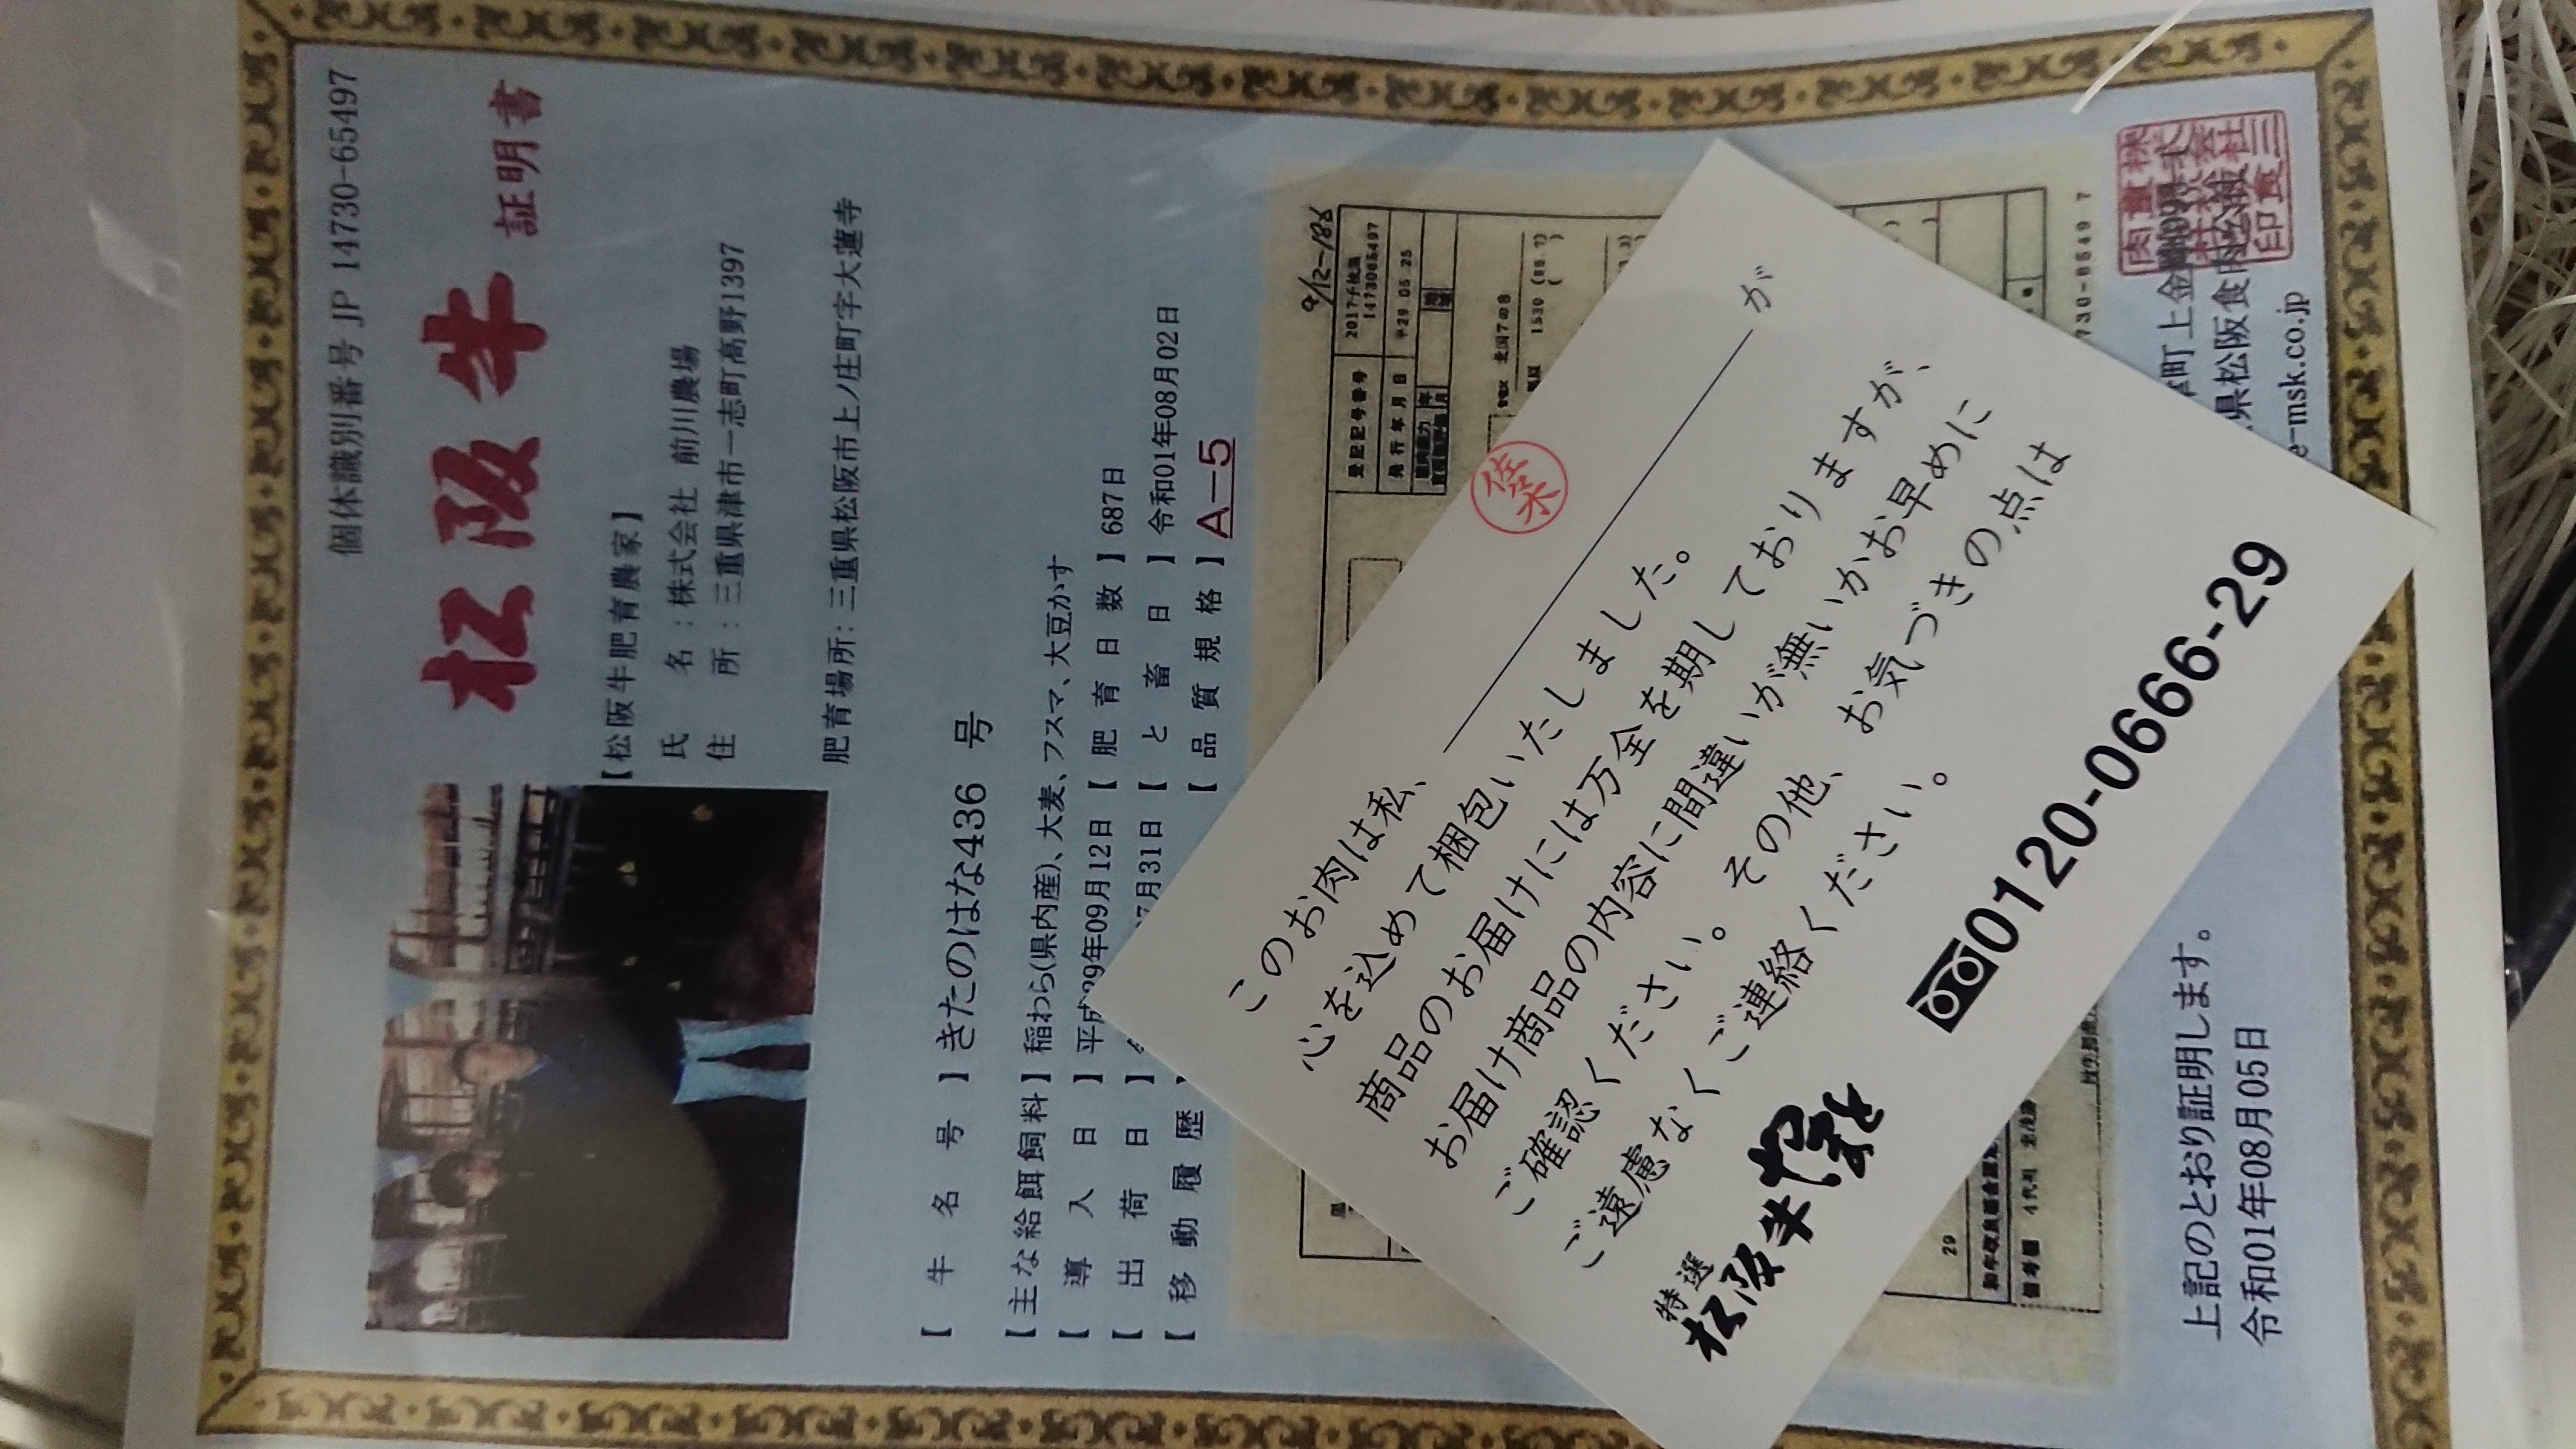 個体識別番号 JP 14730-65497
松阪牛 証明書
【松阪牛肥育農家】
氏 名:株式会社 前川農場
住 所:三重県津市一志町高野1397
肥育場所:三重県松阪市上ノ庄町字大蓮寺
【 牛 名 号 】きたのはな436 号
【主な給餌飼料】稲わら(県内産)、大麦、フスマ、大豆かす
【 導 入 日 】平成29年09月12日【 肥 育 日 数 】687日
【 出 荷 日 】 月31日【 と 畜 日 】令和01年08月02日
【 移 動 履 歴 【 品 質 規 格 】A-5
9/12-186
登記記号番号 2017子牧黒
1473065497
発行年月日 平29 05 25
北国7の8
29
730-6549 7
上記のとおり証明します。
令和01年08月05日
町上金
県松阪食肉
e-msk.co.jp
このお肉は私、 佐木 が
心を込めて梱包いたしました。
商品のお届けには万全を期しておりますが、
お届け商品の内容に間違いが無いかお早めに
ご確認ください。その他、お気づきの点は
ご遠慮なくご連絡ください。
特選
松阪牛やまと
0120-0666-29